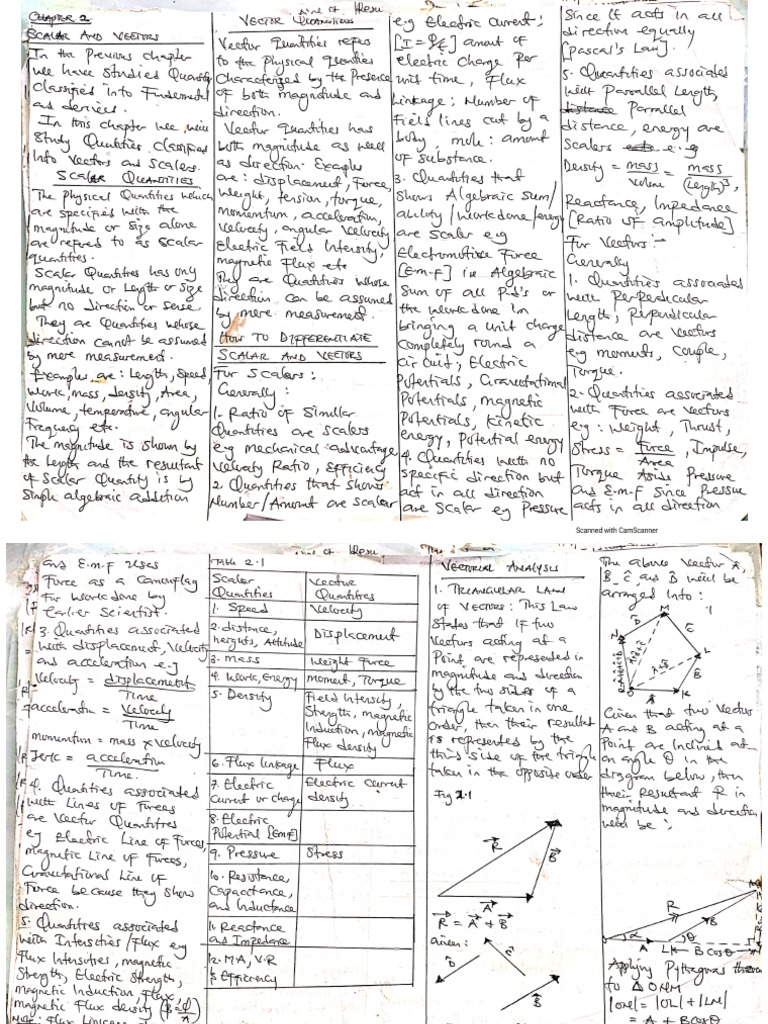 CHAPTER 2
SCALAR AND VECTORS
In the Previous chapter
we have studied Quantity
classified into Fundamental
and derives.
In this chapter we will
study Quntities classified
Into Vectors and Scalers.
SCALAR QUANTITIES
The Physical Quantities which
are specified with the
magnitude or size alone
are refred to as Scalar
quantities.
Scalar Quantities has only
magnitude or Length or size
but no direction or sense.
They are Quantities whose
direction cannot be assumed
by mere measurement.
Examples are: Length, Speed,
Work, mass, density, Area,
Volume, temperature, angular
Frequency etc.
The magnitude is shown by
the Length and the resultant
of Scalar Quantity is by
Simple algebraic addition
VECTOR QUANTITIES
Vector Quantities refes
to the physical Quantities
Characterized by the Presence
of both magnitude and
direction.
Vector Quantities has
both magnitude as well
as direction. Examples
are: displacement, Force,
Weight, tension, torque,
momentum, acceleration,
Velocity, angular Velocity
Electric Field Intensity,
magnetic Flux etc
They are Quantities whose
direction can be assumed
by mere measurement.
HOW TO DIFFERENTIATE
SCALAR AND VECTORS
For Scalers:
Generally:
1. Ratio of Similar
Quantities are Scalers
eg mechanical advantage
Velocity Ratio, Efficiency
2. Quantities that shows
Number/Amount are Scalar
e.g Electric Current:
amount of
electric Charge Per
unit time, Flux
Linkage: Number of
Field lines cut by a
body, mole: amount
of substance.
3. Quantities that
shows Algebraic Sum/
ability/workdone/energy
are Scaler e.g
Electromotive Force
[E.m.F] i.e Algebraic
Sum of all P.d's or
the workdone in
bringing a unit charge
Completely round a
Circuit, Electric
Potentials, Gravitational
Potentials, magnetic
Potentials, Kinetic
energy, Potential energy
4. Quantities with no
specific direction but
act in all direction
are Scalar eg Pressure
Since It acts in all
direction equally
[Pascal's Law].
5. Quantities associated
with Parallel Length,
Parallel
distance, energy are
Scalers e.g
Density = mass/Volume = mass/(Length)³,
Reactance, Impedance
[Ratio of amplitude]
For Vectors:-
Generally
1. Quantities associated
with Perpendicular
Length, Perpendicular
distance are Vectors
eg moments, Couple,
Torque.
2. Quantities associated
with Force are Vectors
eg: Weight, Thrust,
Stress = Force/Area, Impulse,
Torque Aside Pressure
and E.m.F Since Pressure
acts in all direction
Scanned with CamScanner
and E.m.F uses
Force as a Camouflag
For Workdone by
Earlier Scientist.
3. Quantities associated
with displacement, Velocity
and acceleration e.g
Velocity = displacement/Time
acceleration = Velocity/Time
momentum = mass x velocity
Jerk = acceleration/Time.
4. Quantities associated
with Lines of Forces
are Vector Quantities
eg Electric Line of Forces,
magnetic Line of Forces,
Gravitational Line of
Force because they show
direction.
5. Quantities associated
with Intensities/Flux eg
Flux Intensities, magnetic
Strength, Electric Strength,
magnetic Induction, Flux,
magnetic Flux density (B=Φ/A)
Table 2.1
Scalar Quantities Vector Quantities
1. Speed Velocity
2. distance, heights, Altitude Displacement
3. mass Weight Force
4. Work, Energy Moment, Torque
5. Density Field Intensity, Strength, magnetic Induction, magnetic Flux density
6. Flux linkage Flux
7. Electric Current or charge Electric Current density
8. Electric Potential [Emf]
9. Pressure Stress
10. Resistance, Capacitance, and Inductance
11. Reactance and Impedance
12. MA, V.R & Efficiency
VECTORIAL ANALYSIS
1. TRIANGULAR LAW
of VECTORS: This Law
States that if two
Vectors acting at a
Point are represented in
magnitude and direction
by the two sides of a
triangle taken in one
order, then their resultant
is represented by the
third side of the triangle
taken in the opposite order
Fig 2.1
R
B
A
R = A + B
Given:
D
C
B
The above Vector A,
B, C and D will be
arranged Into:
M
D
C
N
L
B
O
A
K
Given that two Vectors
A and B acting at a
Point are Inclined at
an angle θ in the
diagram below, then
their Resultant R in
magnitude and direction
will be:
R
B
α
A
L
θ
B cosθ
Applying Pythagoras theorem
to △ ONM
|ON| = |OL| + |LN|
= A + Bcosθ